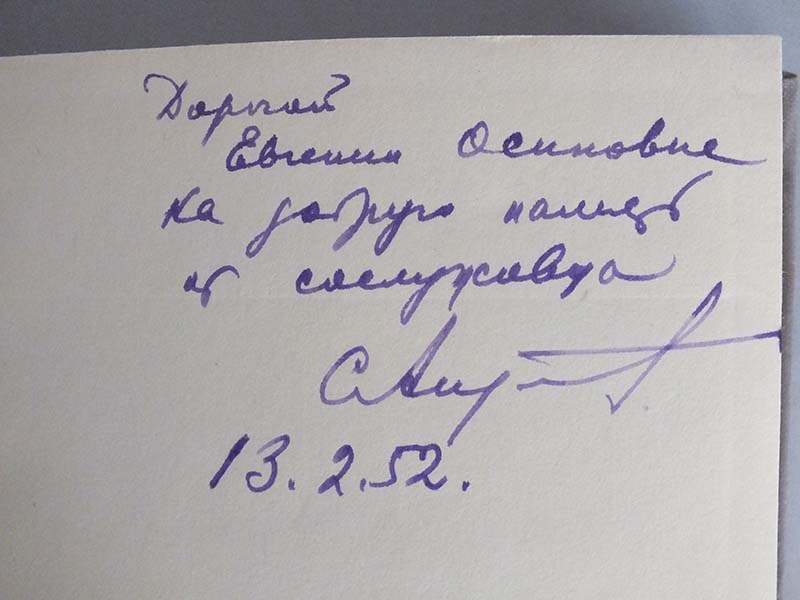 Дорогой
Евгении Осиповне
на добрую память
от сослуживца
13.2.52.